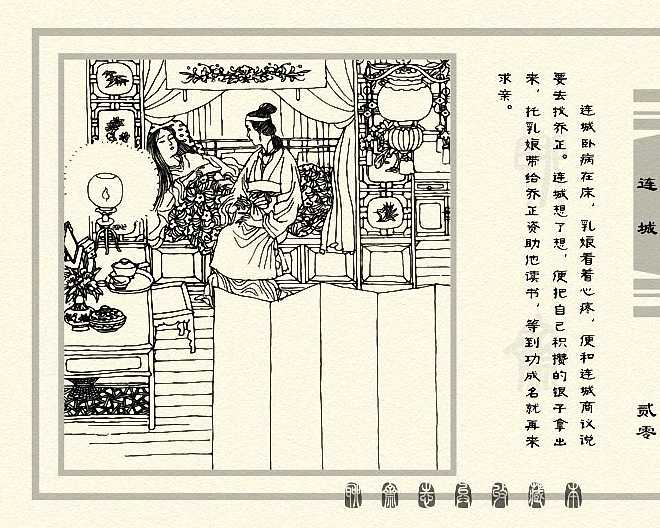 连城卧病在床，乳娘看着心疼，便和连城商议说
要去找乔正。连城想了想，便把自己积攒的银子拿出
来，托乳娘带给乔正资助他读书，等到功成名就再来
求亲。
连城
贰零
聊斋志异收藏本